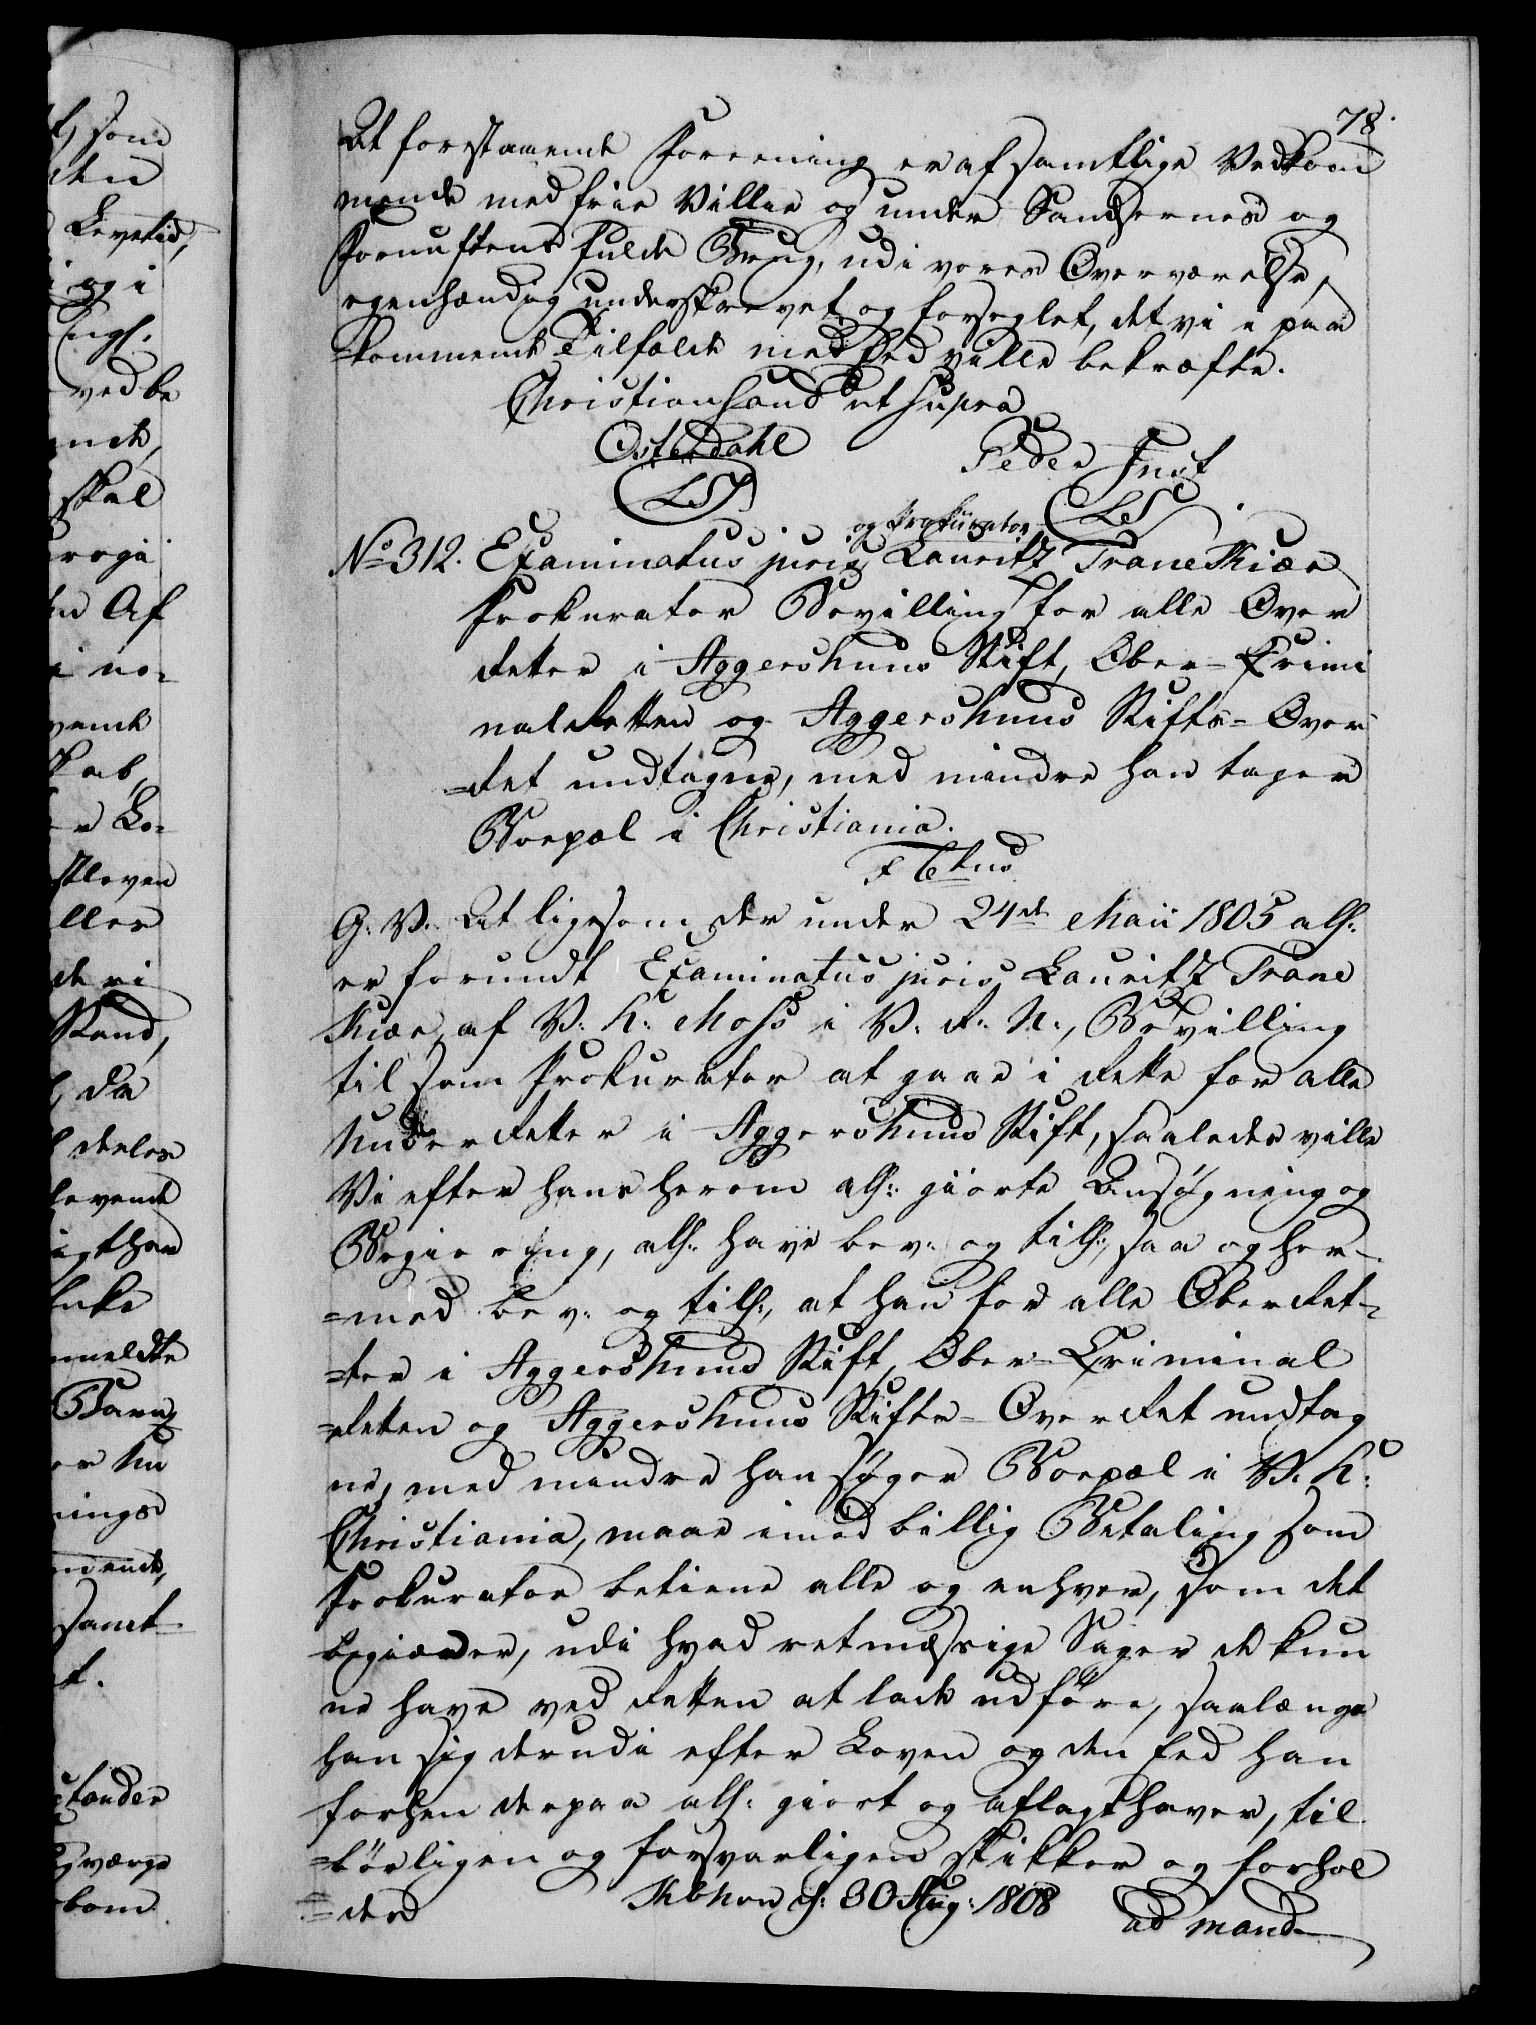 78.
At forestaaende Foreening er af samtlige Vedkom
mende med frie Villie og under Sandsernes og
Fornuftens fulde Brug, udi vores Overværelse,
egenhændig underskrevet og forseglet, det vi i paa
=kommende Tilfælde med Eed ville bekræfte.
Christiansand ut supra
Osterdahl Peder Just
LS LS
og Prokurator
No 312. Examinatus juris Lauritz Trane Kiær
Prokurator Bevilling for alle Over
Retter i Aggershuus Stift, Ober-Crimi
nal Retten og Aggershuus Stifts-Over
=Ret undtagne, med mindre han tager
Boepæl i Christiania.
G. V. At ligesom der under 24de Maii 1805 all:
er forundt Examinatus juris Lauritz Trane
Kiær, af V: K: Moss i V: R: N:, Bevilling
til som Prokurator at gaae i Rette for alle
Under Retter i Aggershuus Stift, saaledes ville
Vi efter hans herom all: giorte Ansøgning og
Begiering, all: have bev: og till:, saa og her-
=med bev: og till:, at han for alle Ober Ret-
=ter i Aggershuus Stift, Ober-Criminal
=Retten og Aggershuus Stifts-Over Ret undtag
ne, med mindre han søger Boepæl i V. K:
Christiania, maae imod billig Betaling som
Prokurator betiene alle og enhver, som det
begiærer, udi hvad retmæssige Sager de kun
ne have ved Retten at lade udføre, saalænge
han sig derudi efter Loven og den Eed han
forhen derpaa all: giort og aflagt haver, til
=børligen og forsvarligen skikker og forhol
=der Kbhavn d: 30 Aug: 1808 ad mand